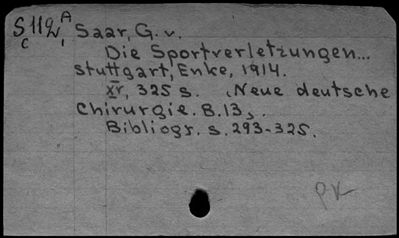 S112 A Saar, G. v.
C 1
Die Sportverletzungen...
Stuttgart, Enke, 1914.
XV, 325 s. (Neue deutsche
Chirurgie. B. 13).
Bibliogr. s. 293-325.